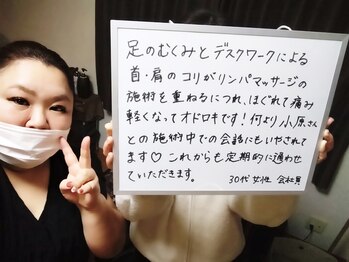 足のむくみとデスクワークによる
首・肩のコリがリンパマッサージの
施術を重ねるにつれ、ほぐれて痛み
軽くなってオドロキです！何より小原さん
との施術中での会話にもいやされて
ます♡これからも定期的に通わせ
ていただきます。
30代女性 会社員